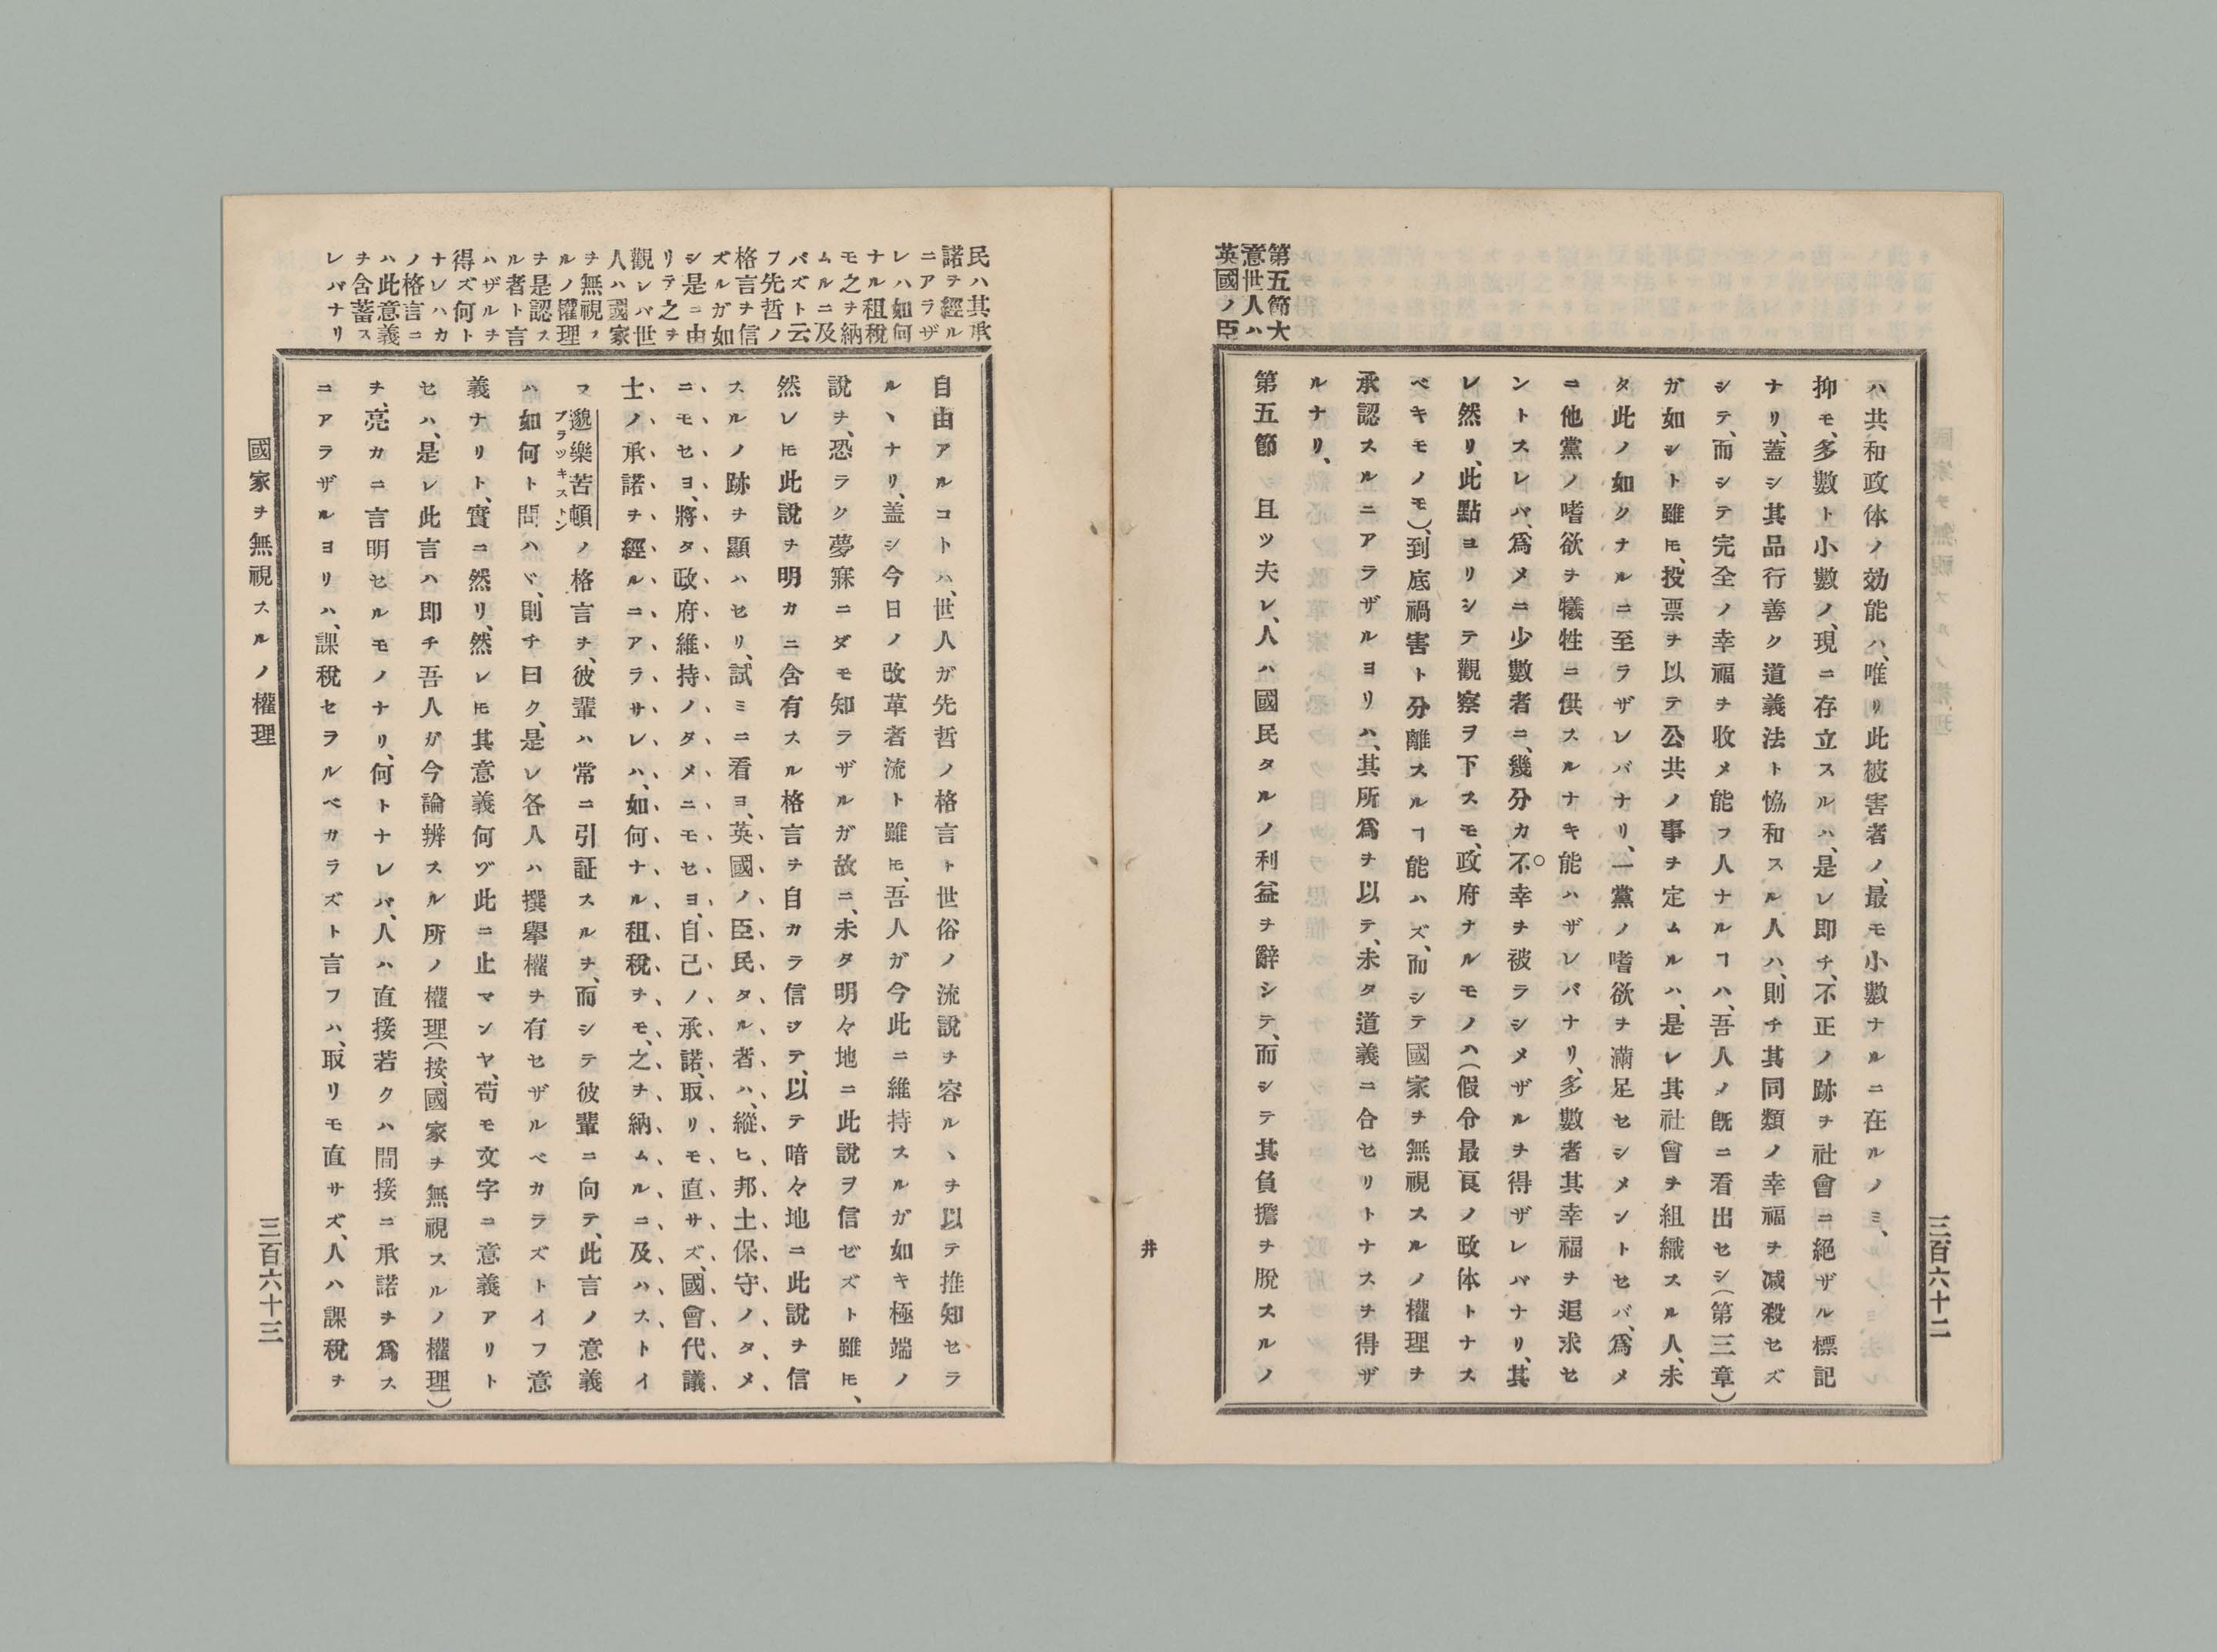 三百六十二
第五節大
意世人ハ
英國ノ臣
ハ共和政体ノ効能ハ、唯リ此被害者ノ、最モ小數ナルニ在ルノミ、
抑モ、多數ト小數ノ、現ニ存立スルハ、是レ即チ、不正ノ跡ヲ社會ニ絕ザル標記
ナリ、蓋シ其品行善ク道義法ト恊和スル人ハ、則チ其同類ノ幸福ヲ减殺セズ
シテ、而シテ完全ノ幸福ヲ收メ能フ人ナルヿハ、吾人ノ旣ニ看出セシ（第三章）
ガ如シト雖𪜈、投票ヲ以テ公共ノ事ヲ定ムルハ、是レ其社會ヲ組織スル人、未
タ此ノ如クナルニ至ラザレバナリ、一黨ノ嗜欲ヲ滿足セシメントセバ、爲メ
ニ他黨ノ嗜欲ヲ犧牲ニ供スルナキ能ハザレバナリ、多數者其幸福ヲ追求セ
ントスレバ、爲メニ少數者ニ、幾分カ不幸ヲ被ラシメザルヲ得ザレバナリ、其
レ然リ、此點ヨリシテ觀察ヲ下スモ、政府ナルモノハ（假令最良ノ政体トナス
ベキモノモ）、到底禍害ト分離スルヿ能ハズ、而シテ國家ヲ無視スルノ權理ヲ
承認スルニアラザルヨリハ、其所爲ヲ以テ、未タ道義ニ合セリトナスヲ得ザ
ルナリ、
第五節　且ツ夫レ、人ハ國民タルノ利益ヲ辭シテ、而シテ其負擔ヲ脫スルノ
井
民ハ其承
諾ヲ經ル
ニアラザ
レハ如何
ナル租稅
モ之ヲ納
ムルニ及
バズト云
フ先哲ノ
格言ヲ信
ズルガ如
シ是ニ由
リテ之ヲ
觀レバ世
人ハ國家
ヲ無視ス
ルノ權理
ヲ是認ス
ル者ト言
ハザルヲ
得ズ何ト
ナレハカ
ノ格言ニ
ハ此意義
ヲ含蓄ス
レバナリ
自由アルコトハ、世人ガ先哲ノ格言ト世俗ノ流說ヲ容ルヽヲ以テ推知セラ
ルヽナリ、盖シ今日ノ改革者流ト雖𪜈、吾人ガ今此ニ維持スルガ如キ極端ノ
說ヲ、恐ラク夢寐ニダモ知ラザルガ故ニ、未タ明々地ニ此說ヲ信ゼズト雖𪜈、
然レ𪜈此說ヲ明カニ含有スル格言ヲ自カラ信ジテ、以テ暗々地ニ此說ヲ信
スルノ跡ヲ顯ハセリ、試ミニ看ヨ、英國ノ臣民タル者ハ、縱ヒ邦土保守ノタメ
ニモセヨ、將タ政府維持ノタメニモセヨ、自己ノ承諾、取リモ直サズ、國會代議
士ノ承諾ヲ經ルニアラサレハ、如何ナル租稅ヲモ、之ヲ納ムルニ及ハストイ
フ邈樂苦頓ノ格言ヲ、彼輩ハ常ニ引証スルヲ、而シテ彼輩ニ向テ、此言ノ意義
ブラッキストン
ハ如何ト問ハヾ、則チ曰ク、是レ各人ハ撰擧權ヲ有セザルベカラズトイフ意
義ナリト、實ニ然リ、然レ𪜈其意義何ヅ此ニ止マンヤ、苟モ文字ニ意義アリト
セハ、是レ此言ハ即チ吾人ガ今論辨スル所ノ權理（按、國家ヲ無視スルノ權理）
ヲ、亮カニ言明セルモノナリ、何トナレバ、人ハ直接若クハ間接ニ承諾ヲ爲ス
ニアラザルヨリハ、課稅セヲルベカラズト言フハ、取リモ直サズ、人ハ課稅ヲ
國家ヲ無視スルノ權理
三百六十三